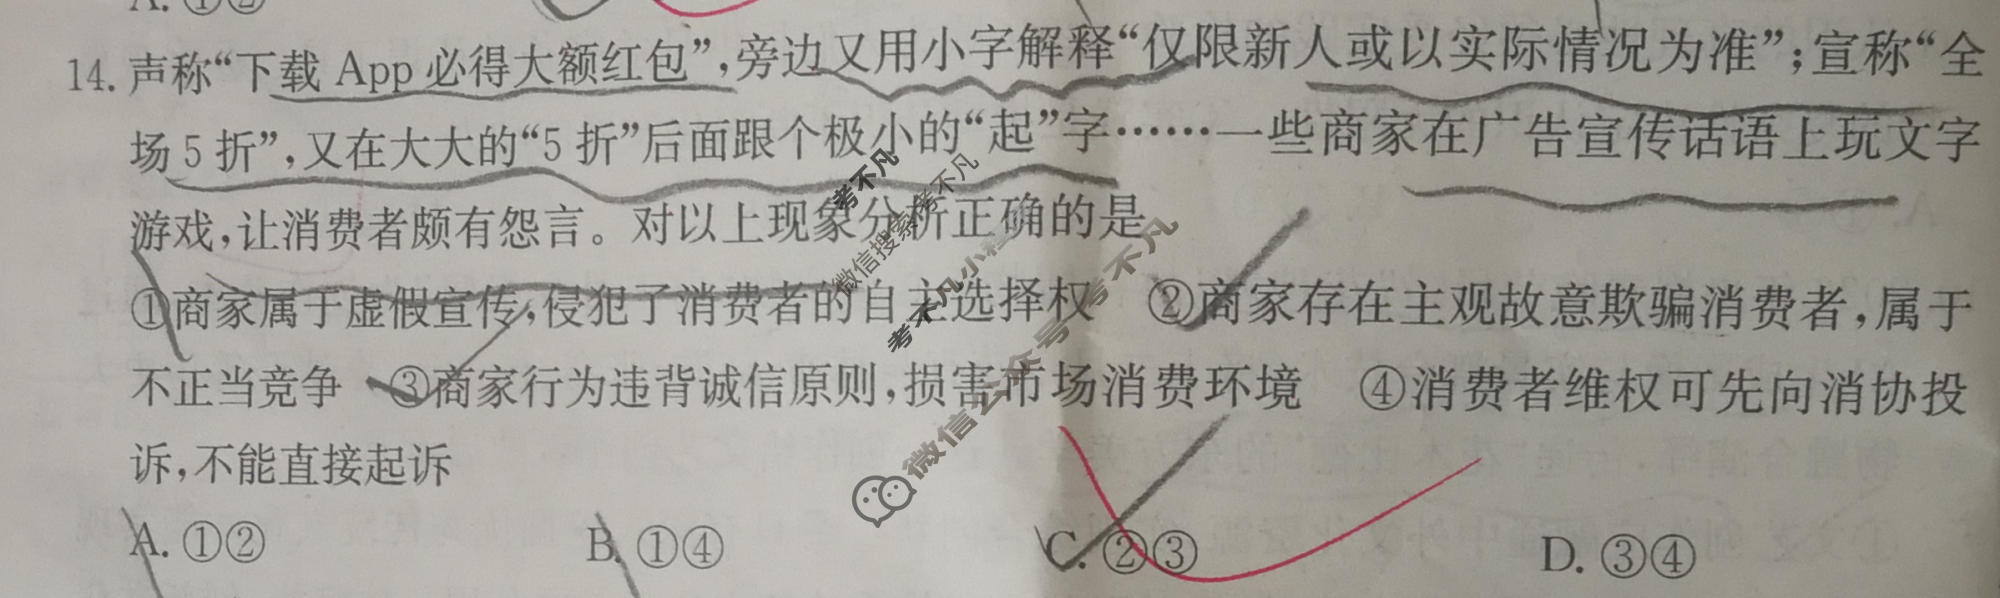 A. ①②
14. 声称“下载 App 必得大额红包”,旁边又用小字解释“仅限新人或以实际情况为准”;宣称“全
场 5 折”,又在大大的“5 折”后面跟个极小的“起”字……一些商家在广告宣传话语上玩文字
游戏,让消费者颇有怨言。对以上现象分析正确的是
①商家属于虚假宣传,侵犯了消费者的自主选择权 ②商家存在主观故意欺骗消费者,属于
不正当竞争 ③商家行为违背诚信原则,损害市场消费环境 ④消费者维权可先向消协投
诉,不能直接起诉
A. ①② B. ①④ C. ②③ D. ③④
考不凡
微信搜索考不凡
考不凡小程
微信公众号考不凡